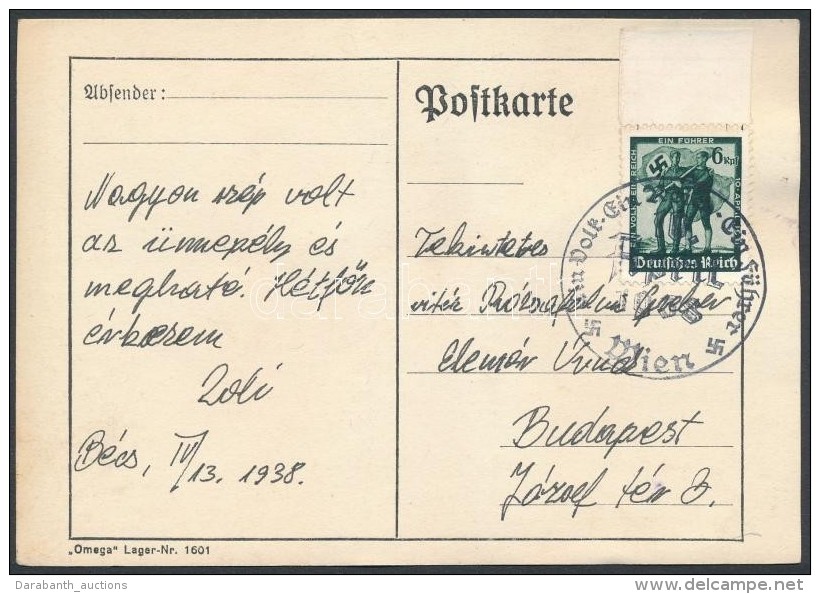 Absender:
Postkarte
EIN VOLK EIN REICH
EIN FÜHRER
10. APRIL
6 Rpf
Deutsches Reich
Ein Volk. Ein
Ein Führer
April
1938
Wien
Nagyon szép volt
az ünnepély és
megható. Hétfőn
érkezem
Zoli
Bécs, IV/13. 1938.
Tekintetes
vitéz
Elemér Úrnak
Budapest
József tér
„Omega" Lager-Nr. 1601
Darabanth_auctions
delcampe.net